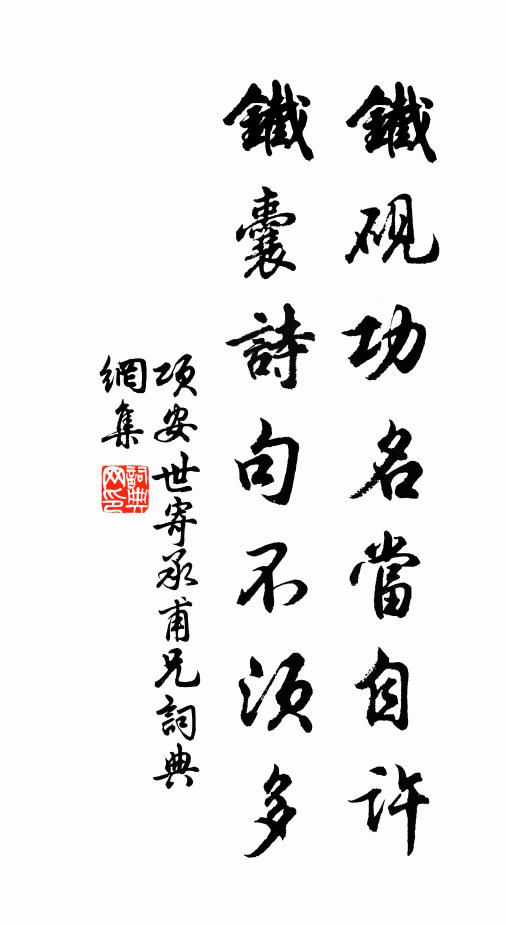 鐵硯功名當自許
鐵囊詩句不須多
項安世寄承甫兄詞典
網集
詞典網印